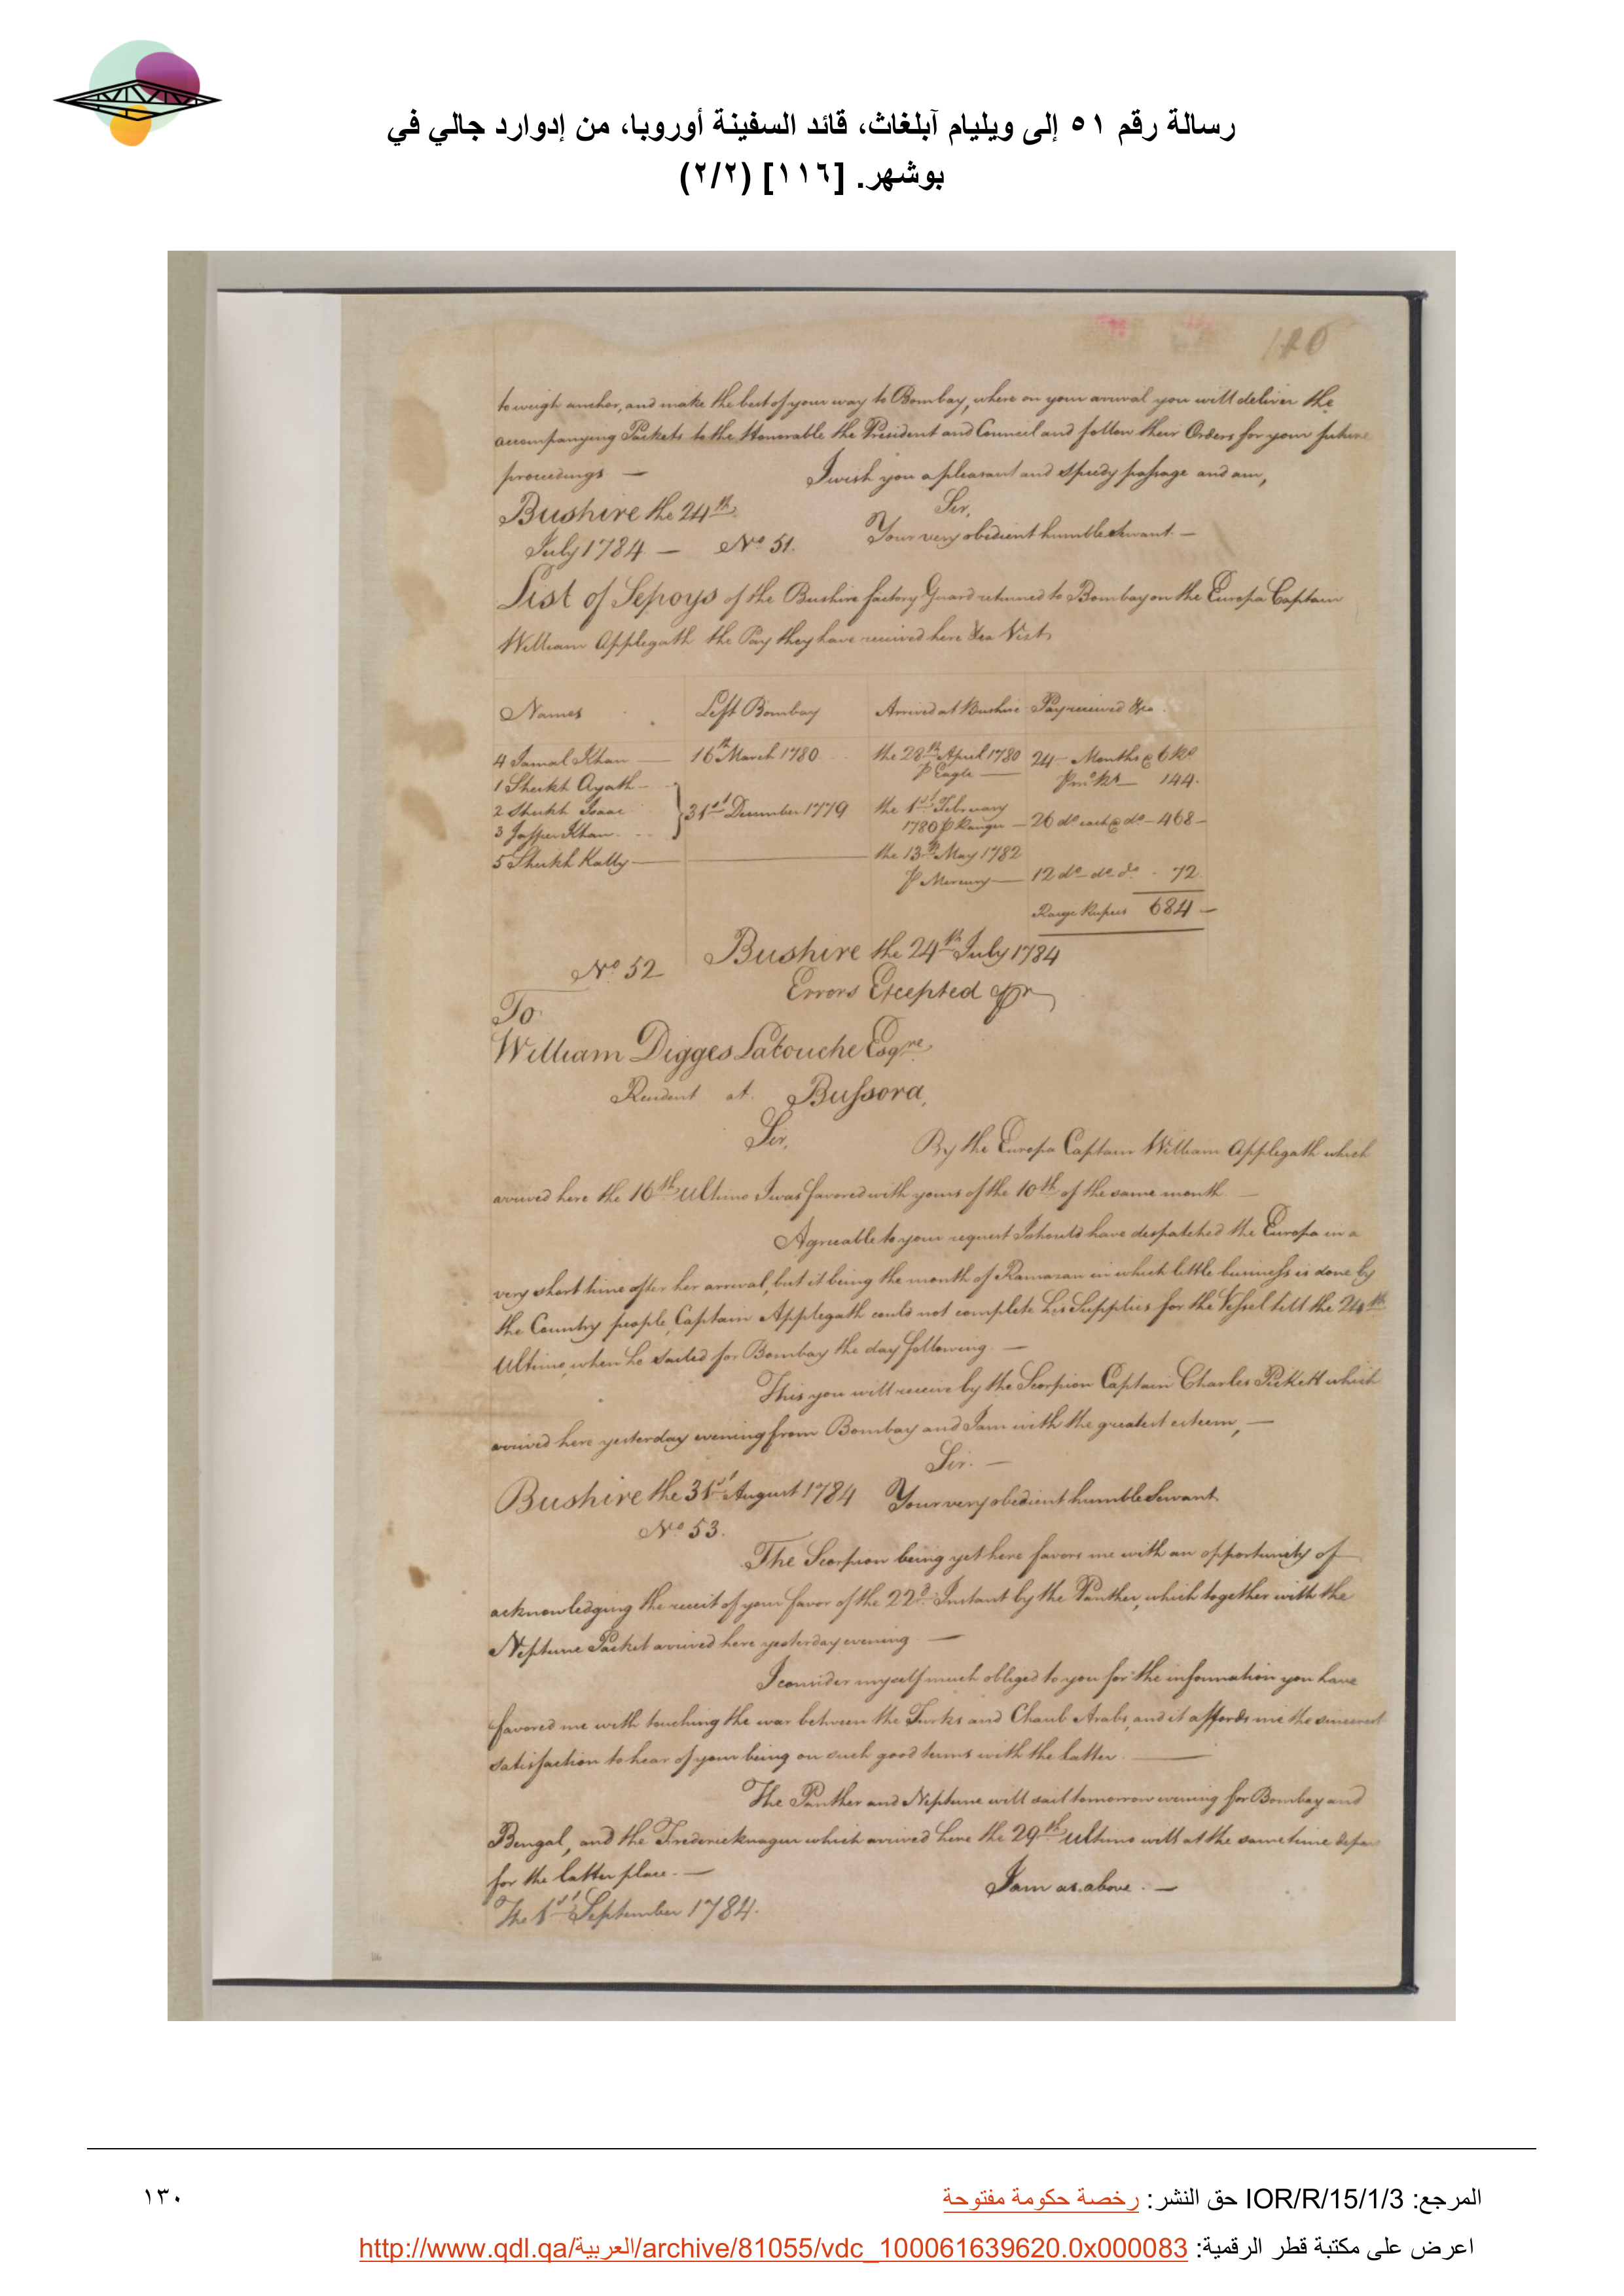 رسالة رقم ٥١ إلى ويليام آبلغاث، قائد السفينة أوروبا، من إدوارد جالي في
بوشهر. [١١٦] (٢/٢)
to weigh anchor, and make the best of your way to Bombay, where on your arrival you will deliver the
accompanying Packets to the Honorable the President and Council and follow their Orders for your future
proceedings — I wish you a pleasant and speedy passage and am,
Sir,
Bushire the 24th
Your very obedient humble Servant. —
July 1784 — No 51.
List of Sepoys of the Bushire factory Guard returned to Bombay on the Europa Captain
William Applegath the Pay they have received here &ca Vizt
Names Left Bombay Arrived at Bushire Pay received &ca.
4 Jamal Khan — 16th March 1780 the 28th April 1780 24 — Months @ 6 Rs
P Eagle — Pr mo Rs — 144.
1 Sheikh Ayath
2 Sheikh Isaac } 31st December 1779 the 1st February
3 Jaffier Khan 1780 P Ranger — 26 do each @ do — 468 —
5 Sheikh Kally — the 13th May 1782
P Mercury — 12 do do do . 72
Rupees 684 —
Bushire the 24th July 1784
No 52
Errors Excepted
To
William Digges Latouche Esqre
Resident at Bussora,
Sir,
By the Europa Captain William Applegath which
arrived here the 16th Ultimo I was favored with yours of the 10th of the same month —
Agreeable to your request I should have despatched the Europa in a
very short time after her arrival, but it being the month of Ramazan in which little business is done by
the Country people, Captain Applegath could not complete his Supplies for the Vessel till the 24th
Ultimo, when he sailed for Bombay the day following. —
This you will receive by the Scorpion Captain Charles Pickett which
arrived here yesterday evening from Bombay and I am with the greatest esteem, —
Sir. —
Bushire the 31st August 1784 Your very obedient humble Servant
No 53.
The Scorpion being yet here favors me with an opportunity of
acknowledging the receit of your favor of the 22d Instant by the Panther, which together with the
Neptune Packet arrived here yesterday evening —
I consider myself much obliged to you for the information you have
favored me with touching the war between the Turks and Chaub Arabs, and it affords me the sincerest
satisfaction to hear of your being on such good terms with the latter. —
The Panther and Neptune will sail tomorrow evening for Bombay and
Bengal, and the Fredericknagur which arrived here the 29th Ultimo will at the same time depa
for the latter place. —
I am as above. —
The 1st September 1784.
المرجع: IOR/R/15/1/3 حق النشر: رخصة حكومة مفتوحة
١٣٠
اعرض على مكتبة قطر الرقمية: http://www.qdl.qa/العربية/archive/81055/vdc_100061639620.0x000083